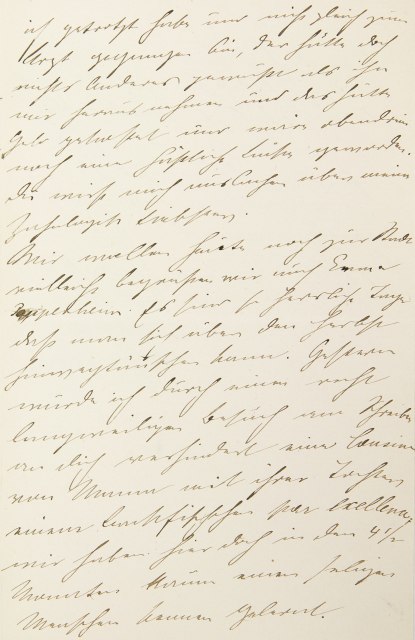 ich getrotzt habe und nicht gleich zum
Arzt gegangen bin, der hätte doch
nichts Anderes gewußt als ihn
mir heraus nehmen und das hätte
Geld gekostet und mir obendrein
noch eine häßliche Lücke geworden.
Du wirst mich auslachen über meine
Liebster.
Wir wollen heute noch zur Stadt
vielleicht begrüßen wir auch Emma
Pappenheim. Es sind so herrliche Tage
daß man sich über den Herbst
hinwegtäuschen kann. Gestern
wurde ich durch einen recht
langweiligen Besuch am Schreiben
an dich verhindert einer Cousine
von Mama mit ihrer Tochter,
einem Backfischchen par excellence
wir haben hier doch in den 4 1/2
Monaten kaum einen
Menschen kennen gelernt.